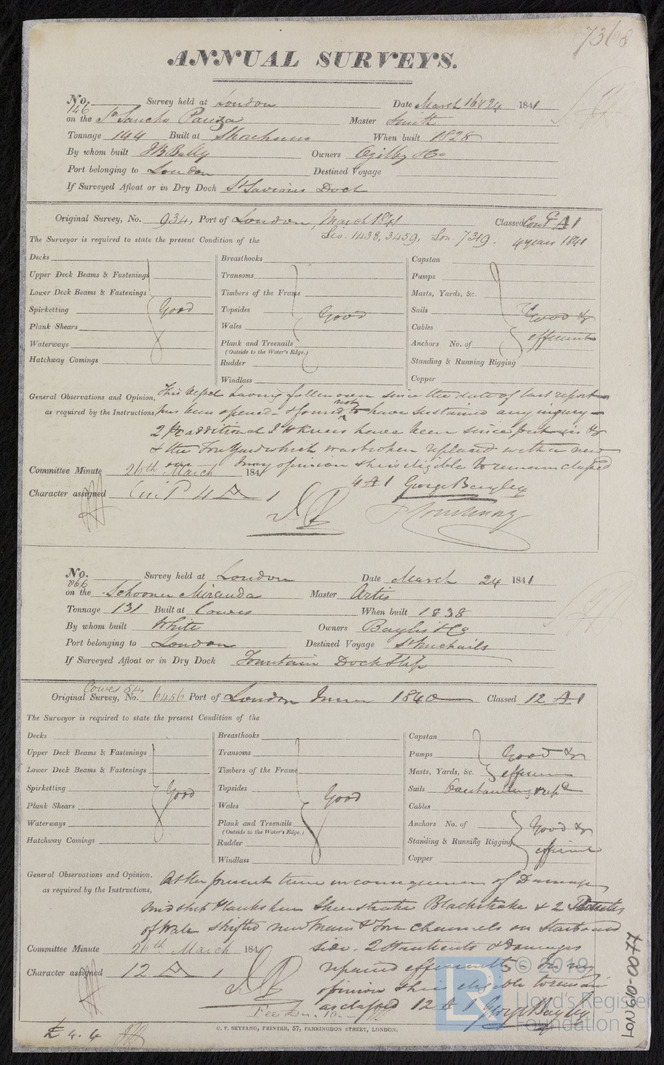 7368
ANNUAL SURVEYS.
No. 146 Survey held at London Date March 16 & 24 1841
on the Sr Sancho Panza Master Smith
Tonnage 144 Built at Shoreham When built 1828
By whom built J B Balley Owners Ogilby & Co
Port belonging to London Destined Voyage
If Surveyed Afloat or in Dry Dock St Saviours Dock
Original Survey, No. 934, Port of London, March 1841 Classed Cont P A 1
Lio. 1438, 3459, Lon. 7319. 4 years 1841
The Surveyor is required to state the present Condition of the
Decks Breasthooks Capstan
Upper Deck Beams & Fastenings Transoms Pumps
Lower Deck Beams & Fastenings Timbers of the Frame Masts, Yards, &c.
Spirketting Good Topsides Good Sails Good &
Plank Shears Wales Cables efficient
Waterways Plank and Treenails Anchors No. of
(Outside to the Water's Edge.)
Hatchway Comings Rudder Standing & Running Rigging
Windlass Copper
General Observations and Opinion, This Vessel having fallen over since the date of last report
as required by the Instructions, has been opened & found not to have sustained any injury
2 additional Knees have been since put in
& the Fore Yard which was broken replaced with a new
one In my opinion she is eligible to remain classed
4 A 1 George Bayley
Committee Minute 26th March 1841
Character assigned Cont P 4 A 1
No. 166 Survey held at London Date March 24 1841
on the Schooner Miranda Master Artis
Tonnage 131 Built at Cowes When built 1838
By whom built White Owners Baylis & Co
Port belonging to London Destined Voyage St Michails
If Surveyed Afloat or in Dry Dock Fountain Dock Slip
Cowes
Original Survey, No. 6456 Port of London June 1840 Classed 12 A 1
The Surveyor is required to state the present Condition of the
Decks Breasthooks Capstan
Upper Deck Beams & Fastenings Transoms Pumps Good &
Lower Deck Beams & Fastenings Timbers of the Frame Masts, Yards, &c. efficient
Spirketting Good Topsides Good Sails
Plank Shears Wales Cables
Waterways Plank and Treenails Anchors No. of Good &
(Outside to the Water's Edge.)
Hatchway Comings Rudder Standing & Running Rigging efficient
Windlass Copper
General Observations and Opinion, At the present time in consequence of Damage
as required by the Instructions, midship Planksheer Sheerstrake Blackstrake & 2 Strakes
of Wale shifted new Main & Fore Channels on Starboard
side. 2 & damages
repaired efficiently In my
opinion she is eligible to remain
as classed 12 A 1 George Bayley
Committee Minute 26th March 1841
Character assigned 12 A 1
£ 4. 4
C. F. SEYFANG, PRINTER, 57, FARRINGDON STREET, LONDON.
LON 609-0077
© 2019
Lloyd's Register
Foundation